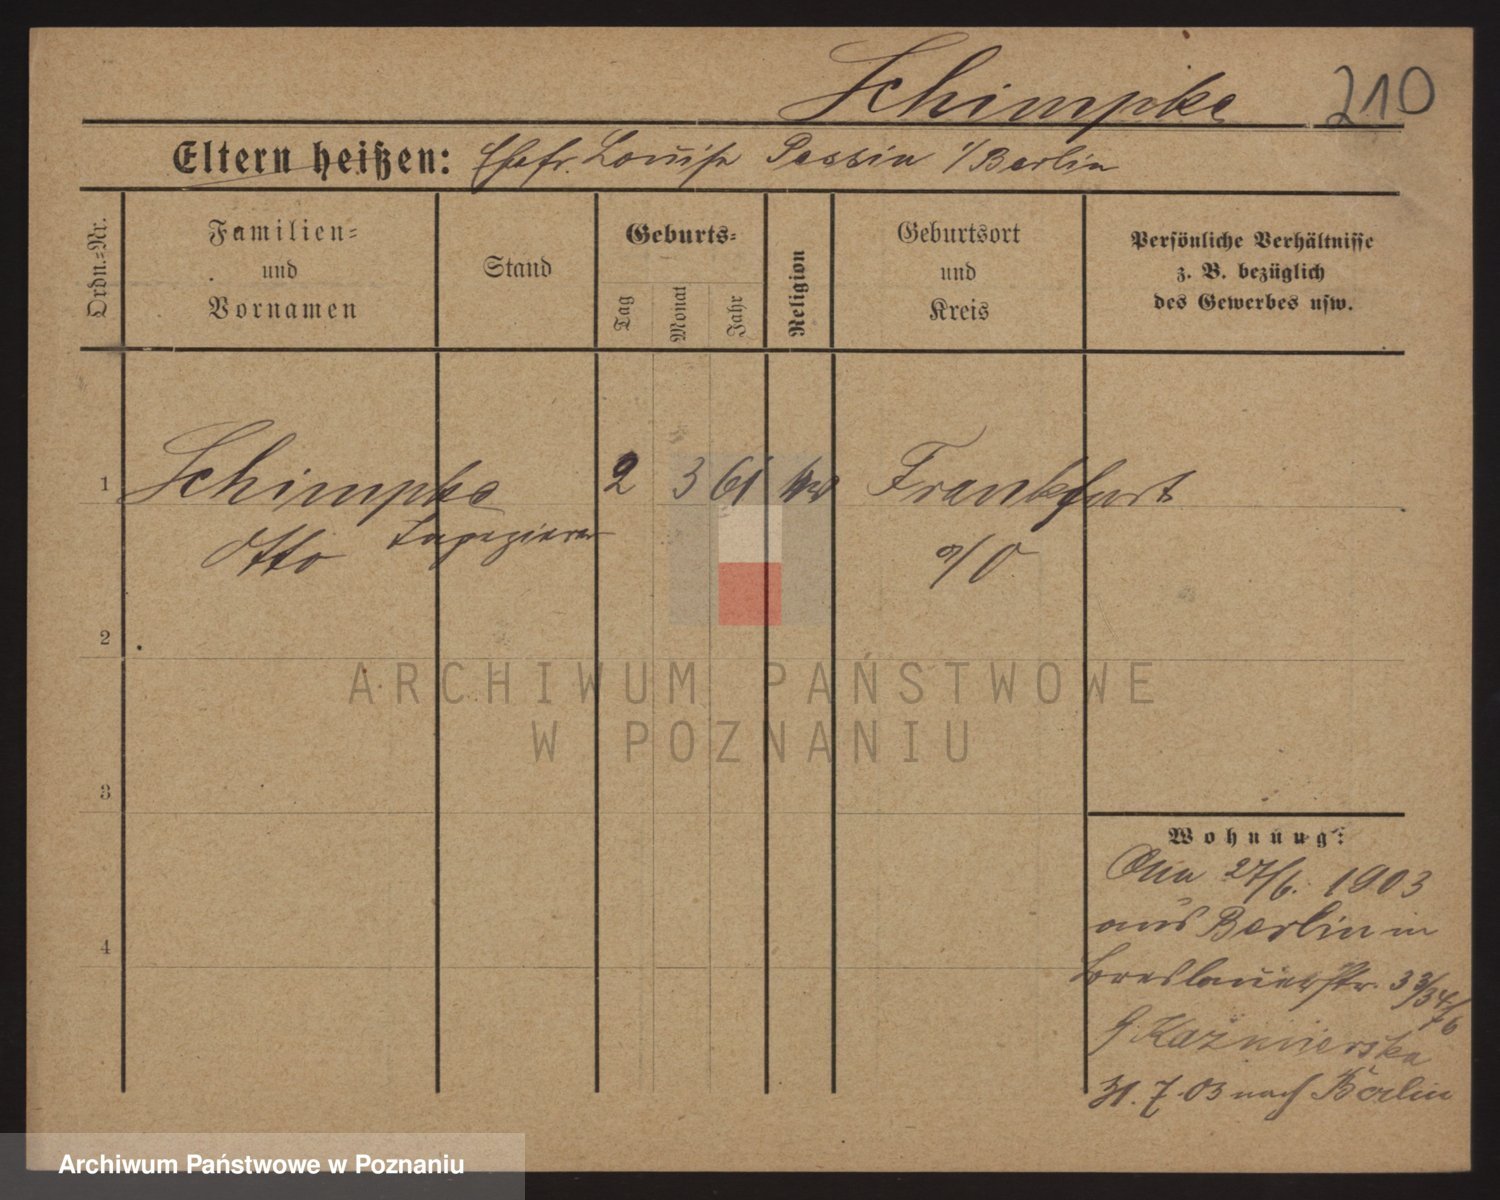 Schimpke 210
Eltern heißen: Ehefr. Louise Pessin i/Berlin
Ordn.-Nr.
Familien-
und
Vornamen
Stand
Geburts-
Tag
Monat
Jahr
Religion
Geburtsort
und
Kreis
Persönliche Verhältnisse
z. B. bezüglich
des Gewerbes usw.
1 Schimpke 2 3 61 Frankfurt
Otto Tapezierer a/O
2
3
4
Wohnung:
27/6. 1903
aus Berlin in
Breslauerstr. 33/34
Kazmierska
31. 7. 03 nach Berlin
ARCHIWUM PAŃSTWOWE
W POZNANIU
Archiwum Państwowe w Poznaniu